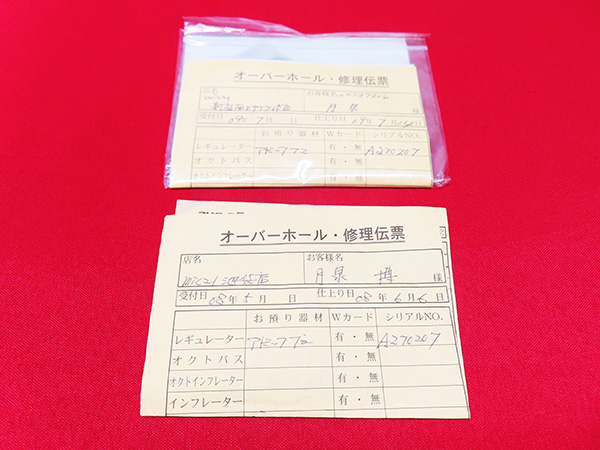 オーバーホール・修理伝票
店名
お客様名
月泉
様
受付日 09年 7月 日 仕上り 09年 7月 日
お預り器材 Wカード シリアルNO.
レギュレーター 有・無 A270207
オクトパス 有・無
オクトインフレ
オーバーホール・修理伝票
店名
お客様名
池袋店
月泉 博 様
受付日 08年 5月 日 仕上り日 08年 6月 6日
お預り器材 Wカード シリアルNO.
レギュレーター 有・無 A270207
オクトパス 有・無
オクトインフレーター 有・無
インフレーター 有・無